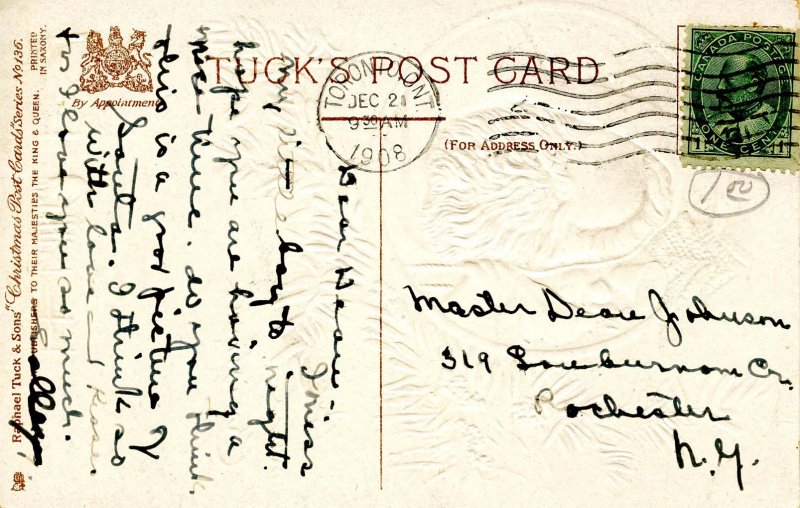 TUCK'S POST CARD
By Appointment
(FOR ADDRESS ONLY.)
Raphael Tuck & Sons' "Christmas Post Cards" Series No 136.
PUBLISHERS TO THEIR MAJESTIES THE KING & QUEEN.
PRINTED
IN SAXONY.
TORONTO, ONT
DEC 21
9 30 AM
1908
CANADA POSTAGE
ONE CENT
1 1
1 00
Dear Deane - I miss
my boy to night.
hope you are having a
nice time. do you think
this is a good picture of
Santa. I think so
with love and kisses
for I love you so much.
Master Deane Johnson
319 Court
Rochester
N.Y.